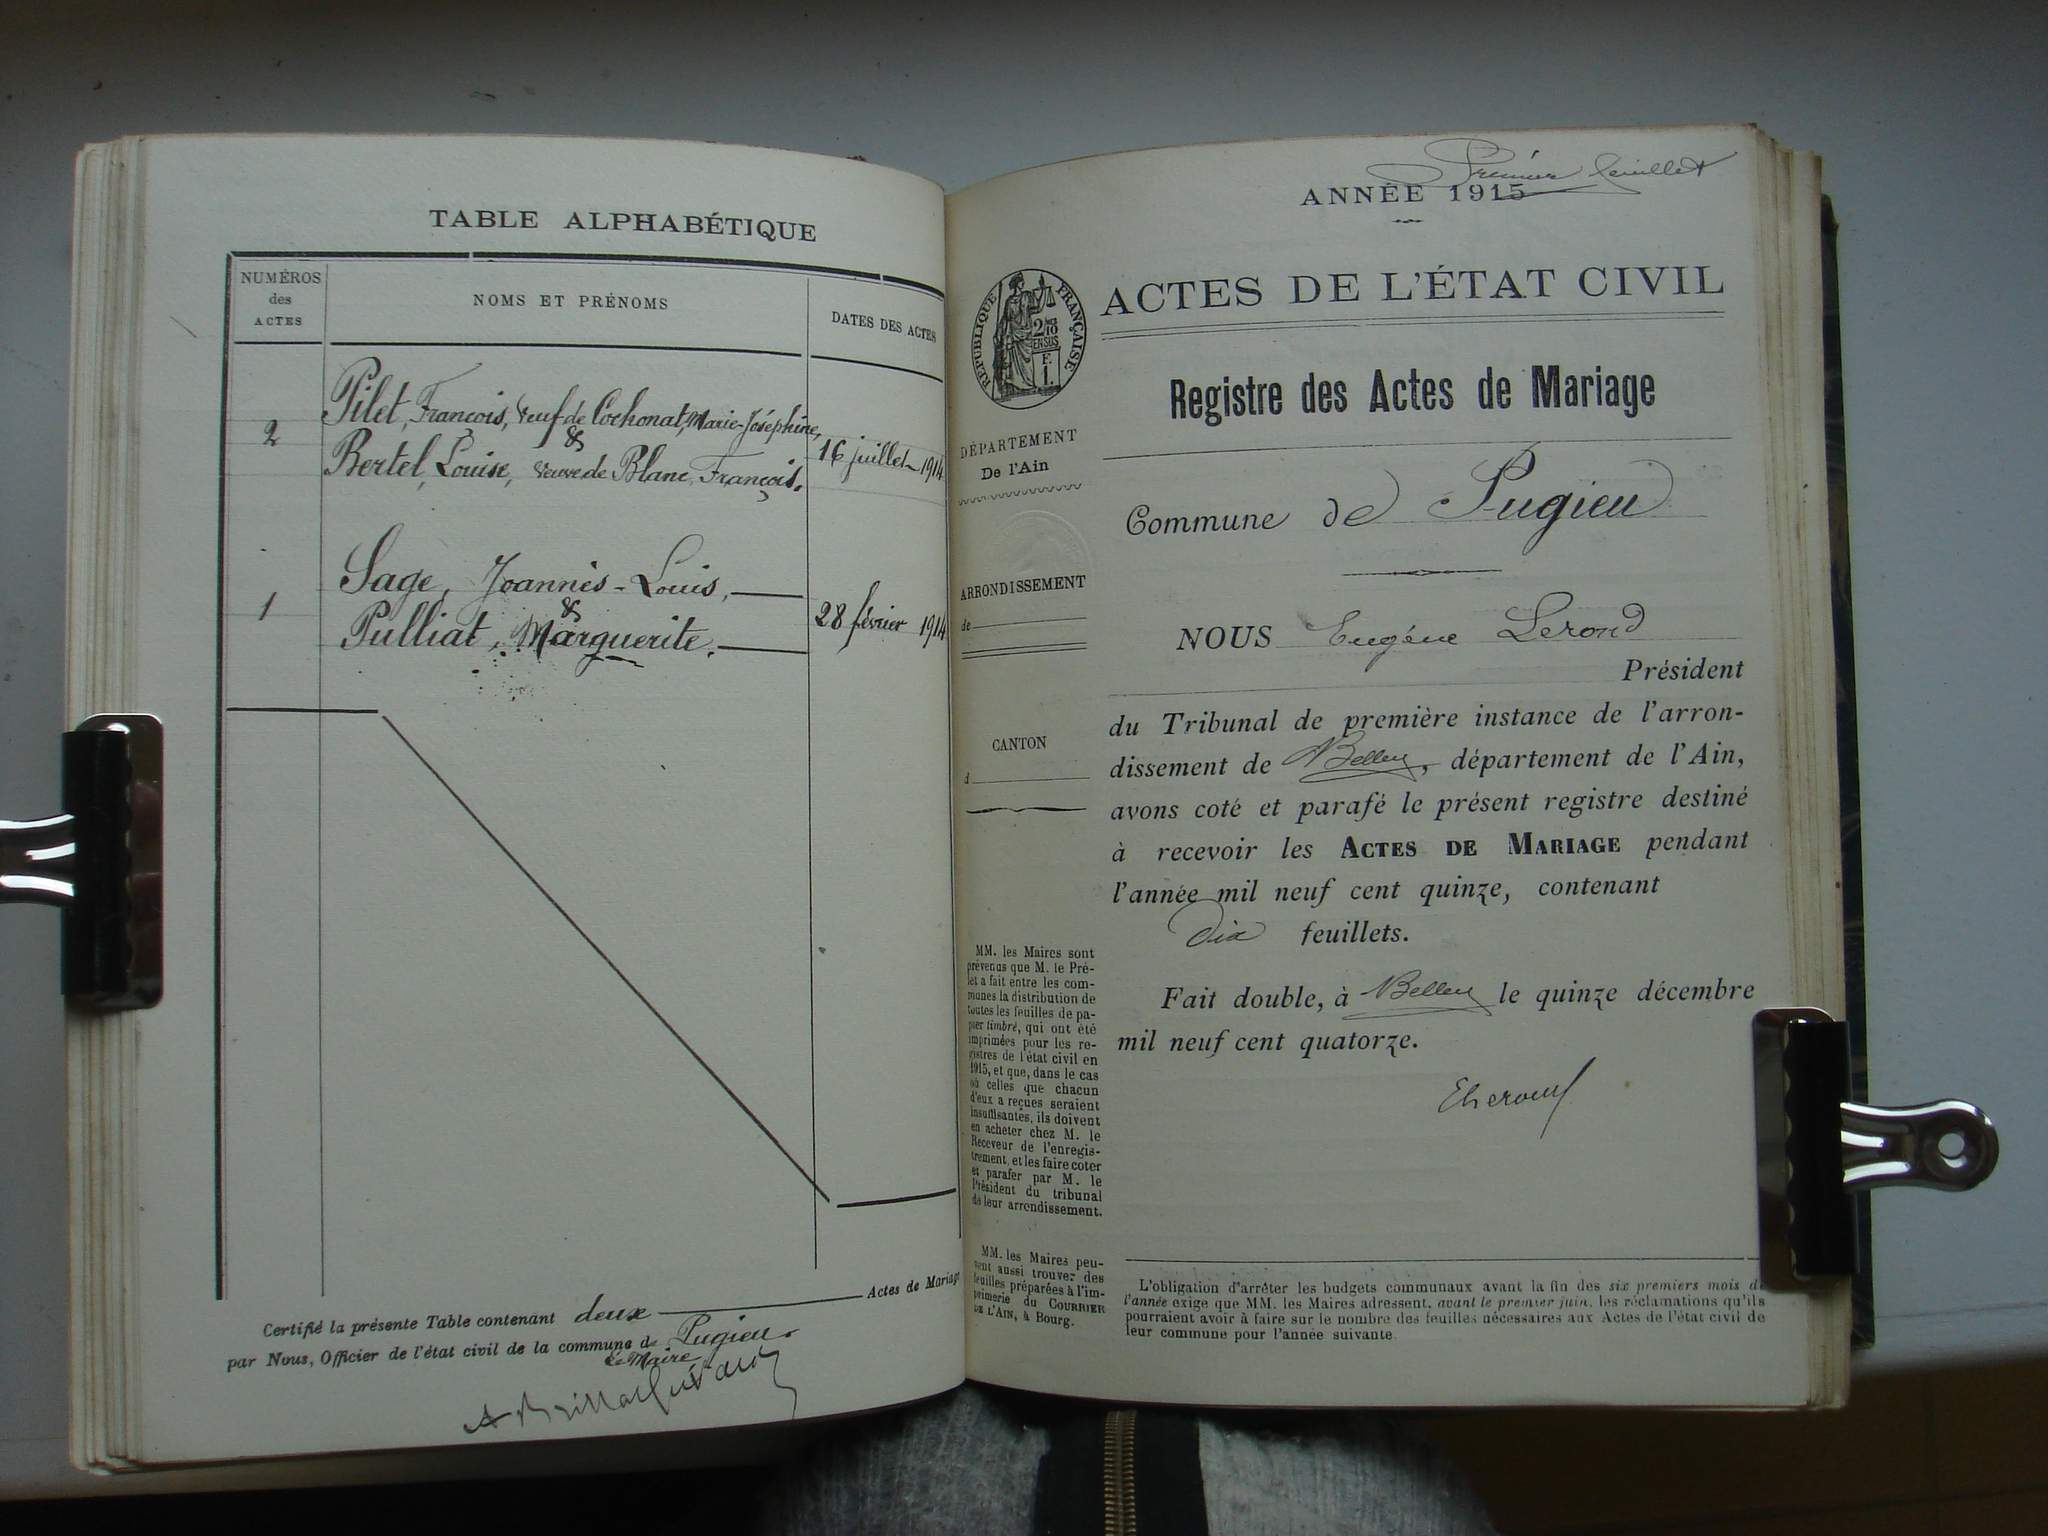 TABLE ALPHABÉTIQUE
NUMÉROS
des
ACTES
NOMS ET PRÉNOMS
DATES DES ACTES
Pilet, François, veuf de Cochonat, Marie-Joséphine,
&
2
Bertel, Louise, veuve de Blanc, François.
16 juillet 1914
Sage, Joannès-Louis,
&
1
Pulliat, Marguerite.
28 février 1914
Certifié la présente Table contenant deux Actes de Mariage
par Nous, Officier de l'état civil de la commune de Pugieu.
Le Maire
Premier feuillet
ANNÉE 1915
RÉPUBLIQUE FRANÇAISE
ACTES DE L'ÉTAT CIVIL
Registre des Actes de Mariage
DÉPARTEMENT
De l'Ain
Commune de Pugieu
ARRONDISSEMENT
de
NOUS Eugène Lerond
Président
du Tribunal de première instance de l'arron-
CANTON
d
dissement de Belley, département de l'Ain,
avons coté et parafé le présent registre destiné
à recevoir les ACTES DE MARIAGE pendant
l'année mil neuf cent quinze, contenant
Dix feuillets.
Fait double, à Belley le quinze décembre
mil neuf cent quatorze.
MM. les Maires sont
prévenus que M. le Pré-
fet a fait entre les com-
munes la distribution de
toutes les feuilles de pa-
pier timbré, qui ont été
imprimées pour les re-
gistres de l'état civil en
1915, et que, dans le cas
où celles que chacun
d'eux a reçues seraient
insuffisantes, ils doivent
en acheter chez M. le
Receveur de l'enregis-
trement, et les faire coter
et parafer par M. le
Président du tribunal
de leur arrondissement.
MM. les Maires peu-
vent aussi trouver des
feuilles préparées à l'im-
primerie du COURRIER
DE L'AIN, à Bourg.
L'obligation d'arrêter les budgets communaux avant la fin des six premiers mois de
l'année exige que MM. les Maires adressent, avant le premier juin, les réclamations qu'ils
pourraient avoir à faire sur le nombre des feuilles nécessaires aux Actes de l'état civil de
leur commune pour l'année suivante.